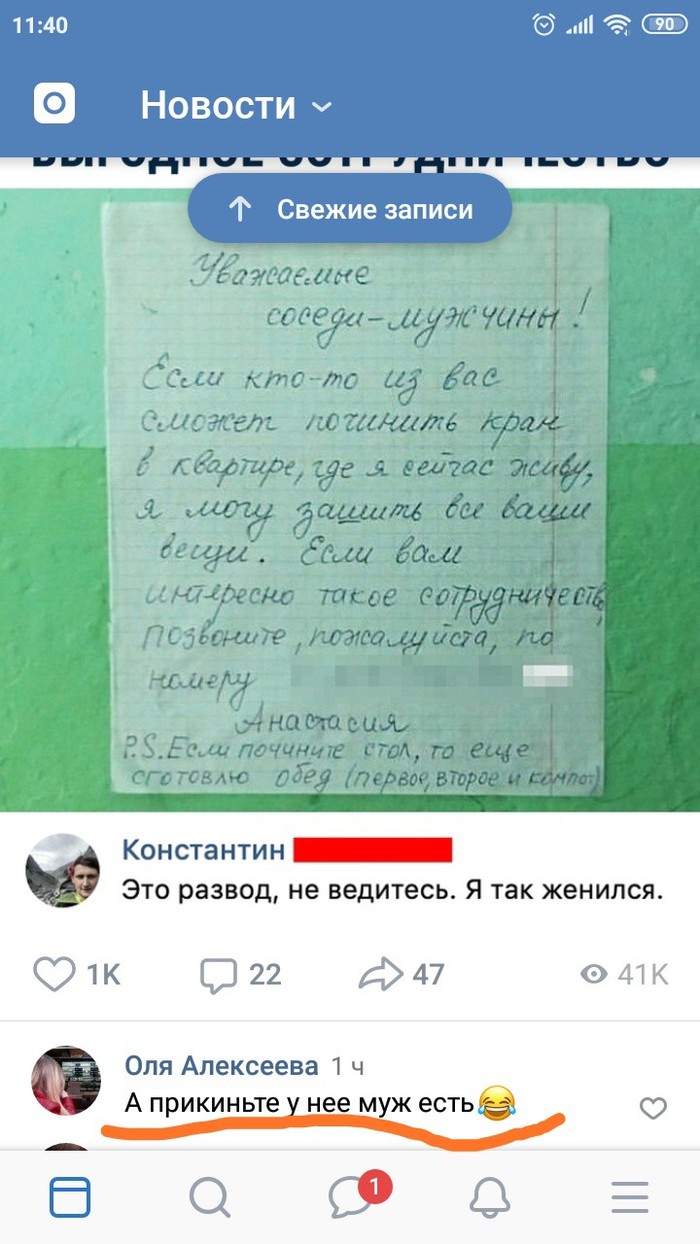 11:40
90
Новости
ВЫГОДНОЕ СОТРУДНИЧЕСТВО
Свежие записи
Уважаемые
соседи-мужчины!
Если кто-то из вас
сможет починить кран
в квартире, где я сейчас живу,
я могу зашить все ваши
вещи. Если вам
интересно такое сотрудничество,
позвоните, пожалуйста, по
номеру
Анастасия
P.S. Если почините стол, то еще
сготовлю обед (первое, второе и компот)
Константин
Это развод, не ведитесь. Я так женился.
1K 22 47 41K
Оля Алексеева 1 ч
А прикиньте у нее муж есть😂
1